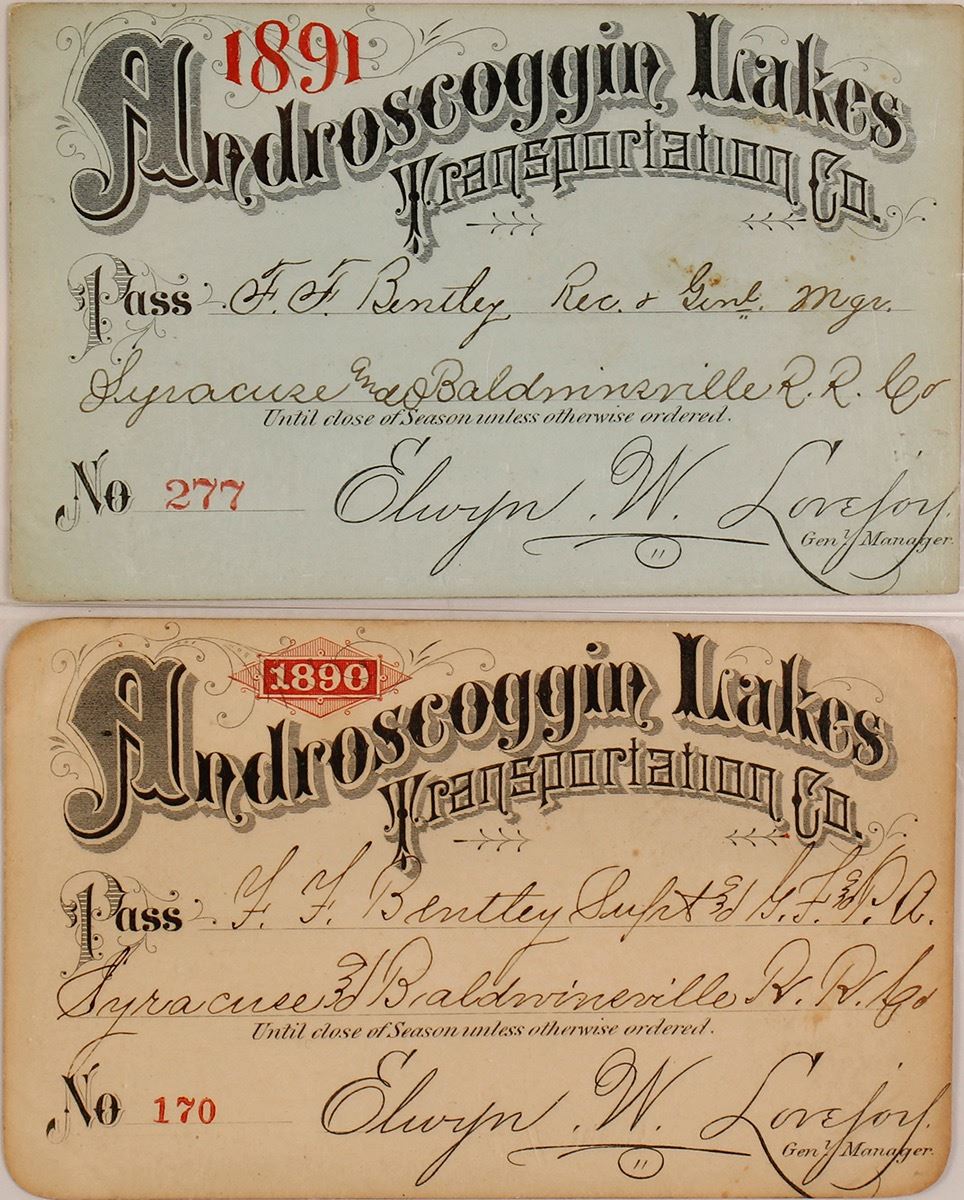 1891
Androscoggin Lakes
Transportation Co.
Pass F. F. Bentley Rec. & Genl. Mgr.
Syracuse and Baldwinsville R. R. Co
Until close of Season unless otherwise ordered.
No 277 Elwyn. W. Lovejoy.
Genl Manager.
1890
Androscoggin Lakes
Transportation Co.
Pass F. F. Bentley Supt & G. F. & P. A.
Syracuse & Baldwinsville R. R. Co
Until close of Season unless otherwise ordered.
No 170 Elwyn. W. Lovejoy.
Genl Manager.